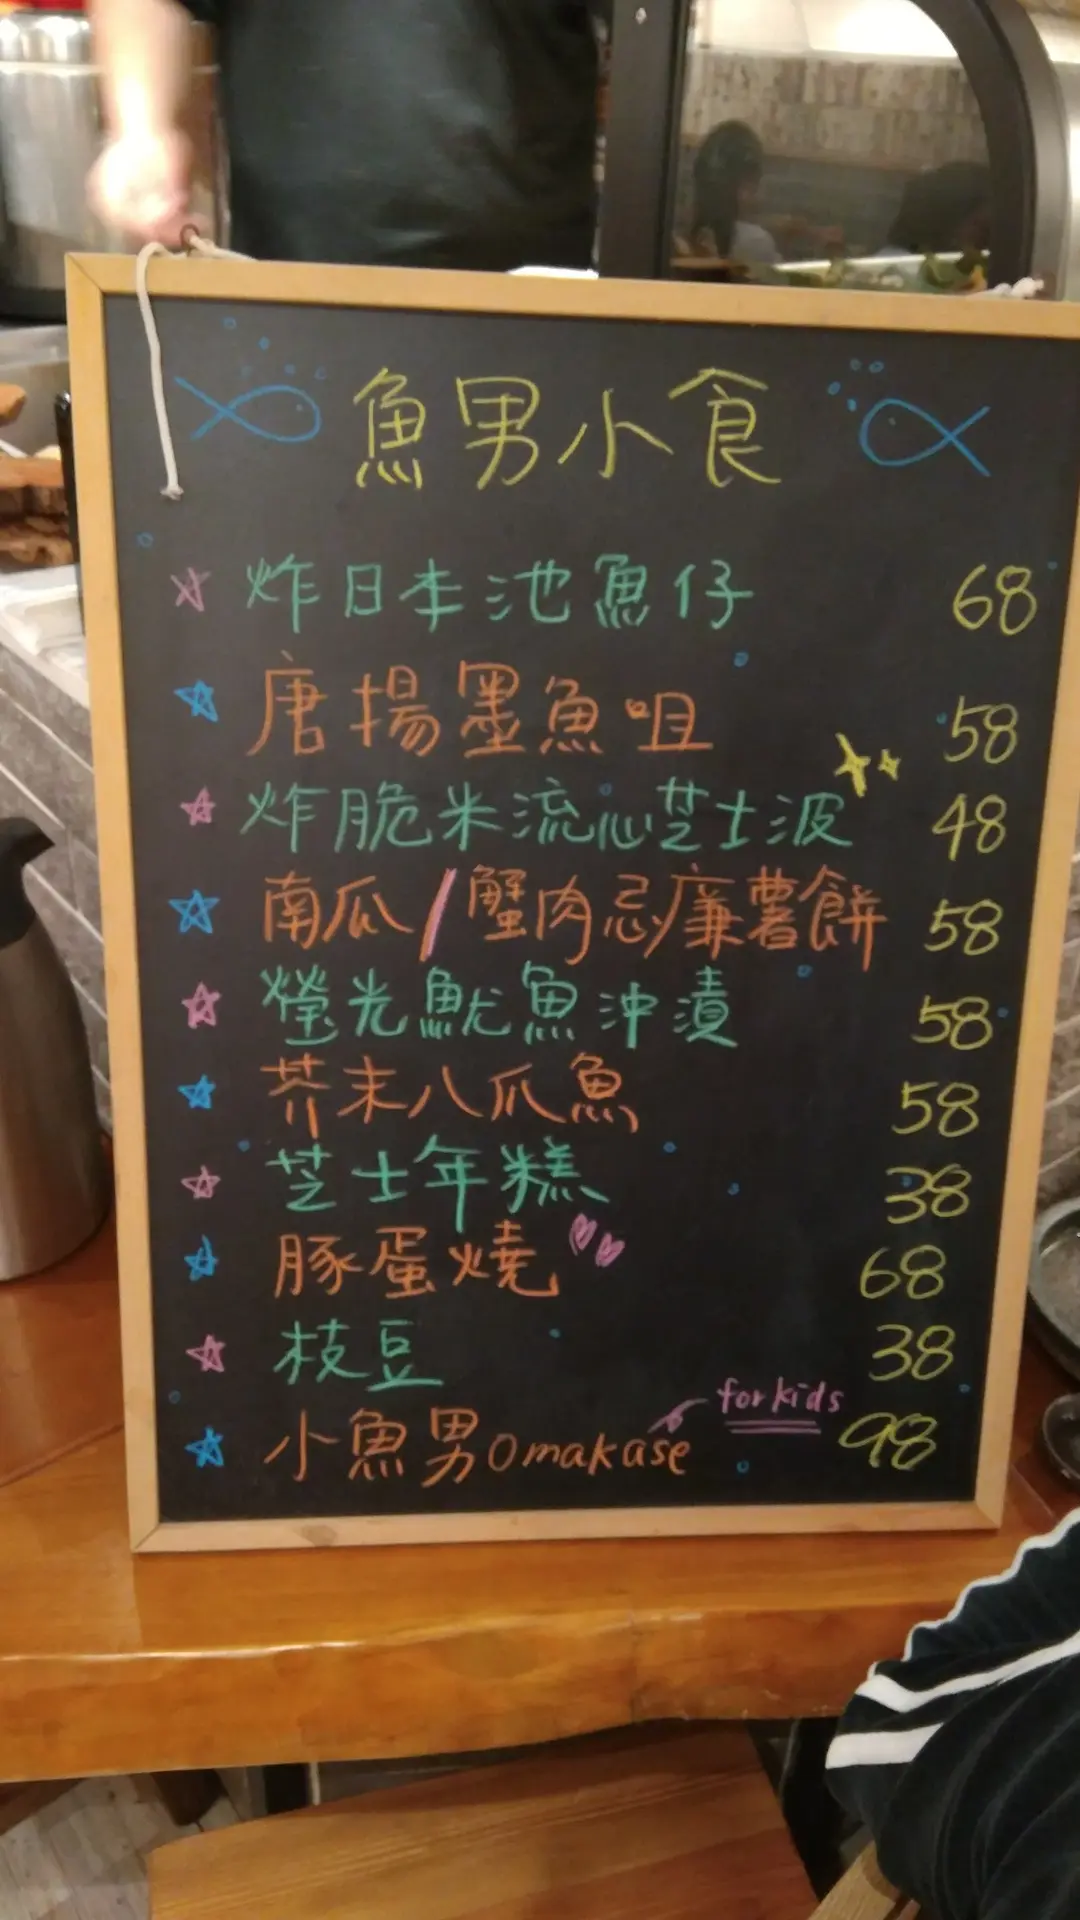 魚男小食
炸日本池魚仔 68
唐揚墨魚咀 58
炸脆米流心芝士波 48
南瓜/蟹肉忌廉薯餅 58
螢光魷魚沖漬 58
芥末八爪魚 58
芝士年糕 38
豚蛋燒 68
枝豆 38
for kids
小魚男Omakase 98